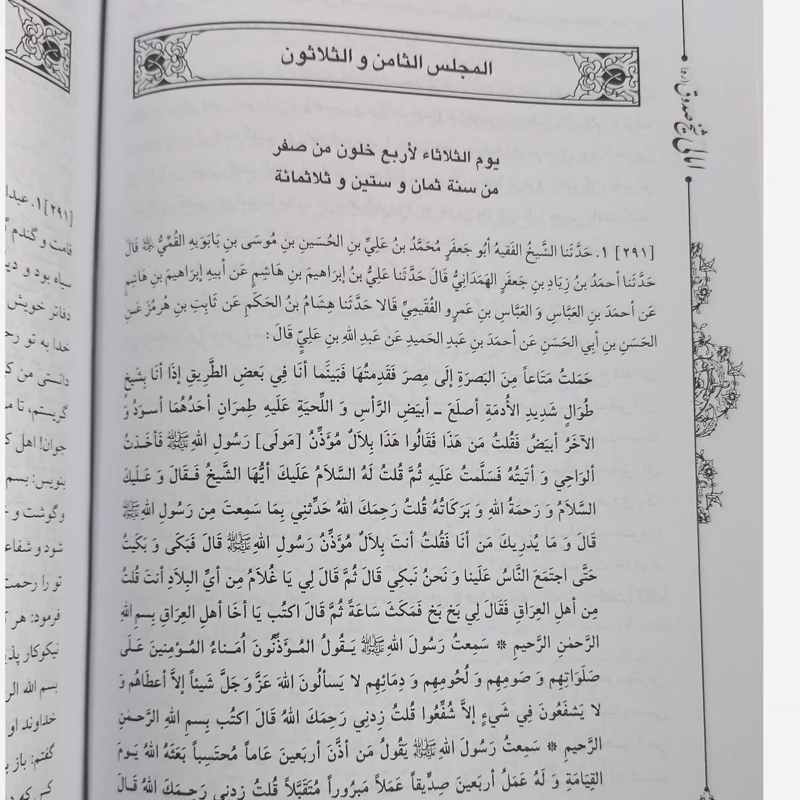 المجلس الثامن و الثلاثون
يوم الثلاثاء لأربع خلون من صفر
من سنة ثمان و ستين و ثلاثمائة
[٢٩١] ١. حَدَّثَنا الشَّيخُ الفَقيهُ أبُو جَعفَرٍ مُحَمَّدُ بنُ عَلِيِّ بنِ الحُسَينِ بنِ مُوسَى بنِ بَابَوَيهِ القُمِّيُّ ﷺ قَالَ
حَدَّثَنا أحمَدُ بنُ زِيَادِ بنِ جَعفَرٍ الهَمَدَانِيُّ قَالَ حَدَّثَنا عَلِيُّ بنُ إبرَاهيمَ بنِ هَاشِمٍ عَن أبيهِ إبرَاهيمَ بنِ هَاشِمٍ
عَن أحمَدَ بنِ العَبَّاسِ وَ العَبَّاسِ بنِ عَمرٍو الفُقَيمِيِّ قَالا حَدَّثَنا هِشَامُ بنُ الحَكَمِ عَن ثَابِتِ بنِ هُرمُزَ عَنِ
الحَسَنِ بنِ أبي الحَسَنِ عَن أحمَدَ بنِ عَبدِ الحَميدِ عَن عَبدِ اللهِ بنِ عَلِيٍّ قَالَ:
حَمَلتُ مَتَاعاً مِنَ البَصرَةِ إلَى مِصرَ فَقَدِمتُهَا فَبَينَمَا أنَا فِي بَعضِ الطَّرِيقِ إذَا أنَا بِشَيخٍ
طُوَالٍ شَدِيدِ الأُدمَةِ أصلَعَ ـ أبيَضِ الرَّأسِ وَ اللِّحيَةِ عَلَيهِ طِمرَانِ أحَدُهُمَا أسوَدُ وَ
الآخَرُ أبيَضُ فَقُلتُ مَن هَذَا فَقَالُوا هَذَا بِلَالٌ مُؤَذِّنُ [مَولَى] رَسُولِ اللهِ ﷺ فَأخَذتُ
ألوَاحِي وَ أتَيتُهُ فَسَلَّمتُ عَلَيهِ ثُمَّ قُلتُ لَهُ السَّلَامُ عَلَيكَ أيُّهَا الشَّيخُ فَقَالَ وَ عَلَيكَ
السَّلَامُ وَ رَحمَةُ اللهِ وَ بَرَكَاتُهُ قُلتُ رَحِمَكَ اللهُ حَدِّثنِي بِمَا سَمِعتَ مِن رَسُولِ اللهِ ﷺ
قَالَ وَ مَا يُدرِيكَ مَن أنَا فَقُلتُ أنتَ بِلَالٌ مُؤَذِّنُ رَسُولِ اللهِ ﷺ قَالَ فَبَكَى وَ بَكَيتُ
حَتَّى اجتَمَعَ النَّاسُ عَلَينَا وَ نَحنُ نَبكِي قَالَ ثُمَّ قَالَ لِي يَا غُلَامُ مِن أيِّ البِلَادِ أنتَ قُلتُ
مِن أهلِ العِرَاقِ فَقَالَ لِي بَخ بَخ فَمَكَثَ سَاعَةً ثُمَّ قَالَ اكتُب يَا أخَا أهلِ العِرَاقِ بِسمِ اللهِ
الرَّحمٰنِ الرَّحيمِ * سَمِعتُ رَسُولَ اللهِ ﷺ يَقُولُ المُؤَذِّنُونَ أُمَنَاءُ المُؤمِنِينَ عَلَى
صَلَوَاتِهِم وَ صَومِهِم وَ لُحُومِهِم وَ دِمَائِهِم لَا يَسألُونَ اللهَ عَزَّ وَ جَلَّ شَيئاً إلَّا أعطَاهُم وَ
لَا يَشفَعُونَ فِي شَيءٍ إلَّا شُفِّعُوا قُلتُ زِدنِي رَحِمَكَ اللهُ قَالَ اكتُب بِسمِ اللهِ الرَّحمٰنِ
الرَّحيمِ * سَمِعتُ رَسُولَ اللهِ ﷺ يَقُولُ مَن أذَّنَ أربَعِينَ عَاماً مُحتَسِباً بَعَثَهُ اللهُ يَومَ
القِيَامَةِ وَ لَهُ عَمَلُ أربَعِينَ صِدِّيقاً عَمَلاً مَبرُوراً مُتَقَبَّلاً قُلتُ زِدنِي رَحِمَكَ اللهُ قَالَ
امالی شیخ صدوق (ره)
[٢٩١] ١. عبدا
قامت و گندم
سیاه بود و دی
دفاتر خویش
خدا به تو رح
دانستی من ک
گریستم، تا م
جوان! اهل ک
بنویس: بسم
وگوشت و
شود و شفاء
تو را رحمت
فرمود: هر ک
نیکوکار پذی
بسم الله الر
خداوند او
گفتم: باز ب
کس که د